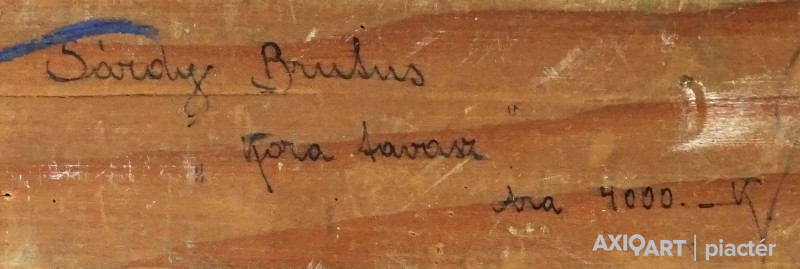 Sárdy Brutus
„Kora tavasz"
Ára 4000.- K
AXIOART | piactér